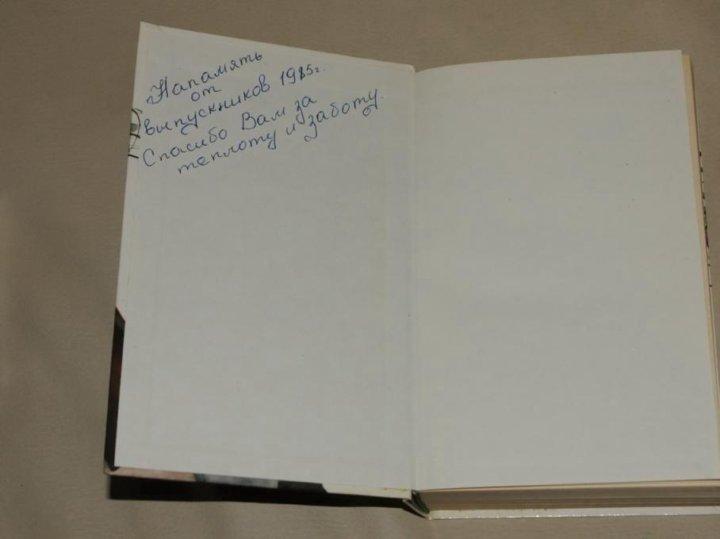 Напамять
от
выпускников 1985г.
Спасибо Вам за
теплоту и заботу.